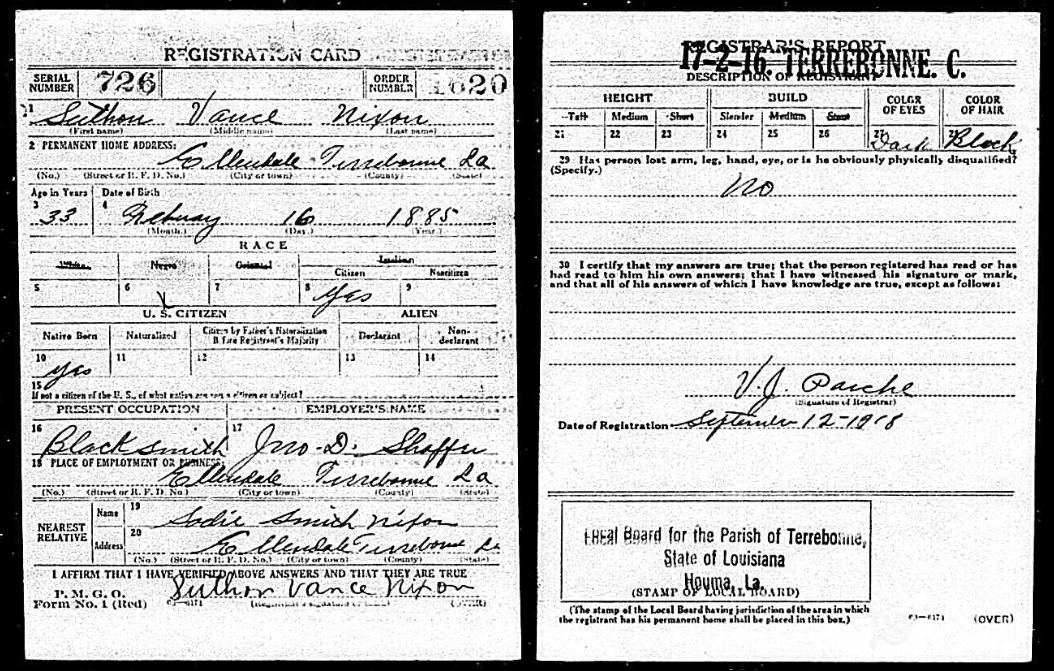 REGISTRATION CARD
SERIAL NUMBER 726 ORDER NUMBER 1620
1 Suthon Vance Nixon
(First name) (Middle name) (Last name)
2 PERMANENT HOME ADDRESS:
Ellendale Terrebonne La
(No.) (Street or R. F. D. No.) (City or town) (County) (State)
Age in Years Date of Birth
3 33 4 Febuay 16 1885
(Month.) (Day.) (Year.)
RACE
White Negro Oriental Indian
Citizen Noncitizen
5 6 X 7 8 Yes 9
U. S. CITIZEN ALIEN
Native Born Naturalized Citizen by Father's Naturalization Before Registrant's Majority Declarant Non-declarant
10 Yes 11 12 13 14
15 If not a citizen of the U. S., of what nation are you a citizen or subject?
PRESENT OCCUPATION EMPLOYER'S NAME
16 Blacksmith 17 Jno. D. Shaffer
18 PLACE OF EMPLOYMENT OR BUSINESS:
Ellendale Terrebonne La
(No.) (Street or R. F. D. No.) (City or town) (County) (State)
NEAREST RELATIVE
Name 19 Sadie Smith Nixon
Address 20 Ellendale Terrebonne La
(No.) (Street or R. F. D. No.) (City or town) (County) (State)
I AFFIRM THAT I HAVE VERIFIED ABOVE ANSWERS AND THAT THEY ARE TRUE
P. M. G. O.
Form No. 1 (Red) 03-6171 Suthon Vance Nixon
(Registrant's signature or mark) (OVER)
REGISTRAR'S REPORT
17-2-16 TERREBONNE. C.
DESCRIPTION OF REGISTRANT
HEIGHT BUILD COLOR OF EYES COLOR OF HAIR
Tall Medium Short Slender Medium Stout
21 22 23 24 25 26 27 Dark 28 Black
29 Has person lost arm, leg, hand, eye, or is he obviously physically disqualified?
(Specify.)
No
30 I certify that my answers are true; that the person registered has read or has
had read to him his own answers; that I have witnessed his signature or mark,
and that all of his answers of which I have knowledge are true, except as follows:
V. J. Parche
(Signature of Registrar)
Date of Registration September 12-1918
Local Board for the Parish of Terrebonne,
State of Louisiana
Houma, La.
(STAMP OF LOCAL BOARD)
(The stamp of the Local Board having jurisdiction of the area in which
the registrant has his permanent home shall be placed in this box.)
03-6171 (OVER)